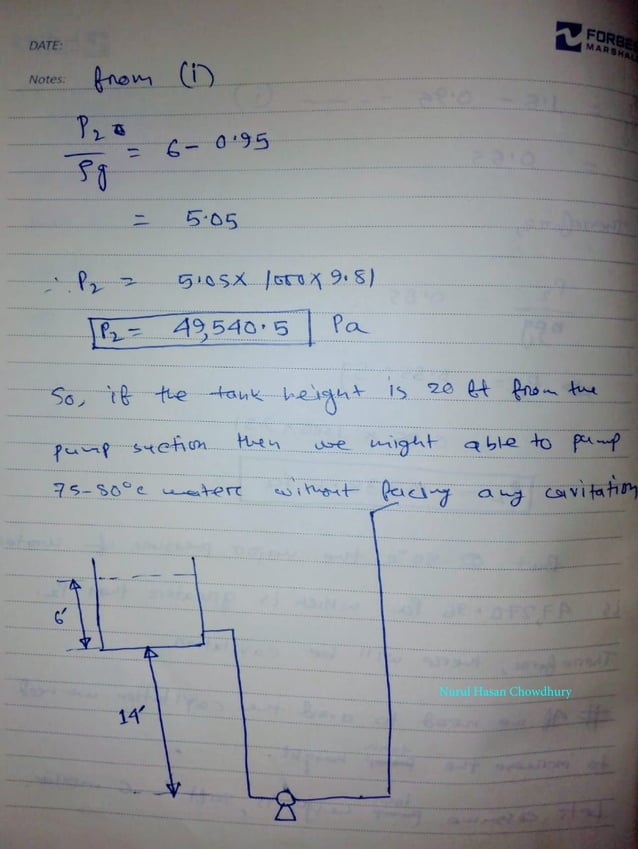 DATE:
FORBES
MARSHALL
Notes: from (i)
P₂
―― = 6 - 0.95
ρg
= 5.05
∴ P₂ = 5.05 x 1000 x 9.81
P₂ = 49,540.5 Pa
So, if the tank height is 20 ft from the
pump suction then we might able to pump
75-80°c waterc without facing any cavitation
6'
14'
Nurul Hasan Chowdhury